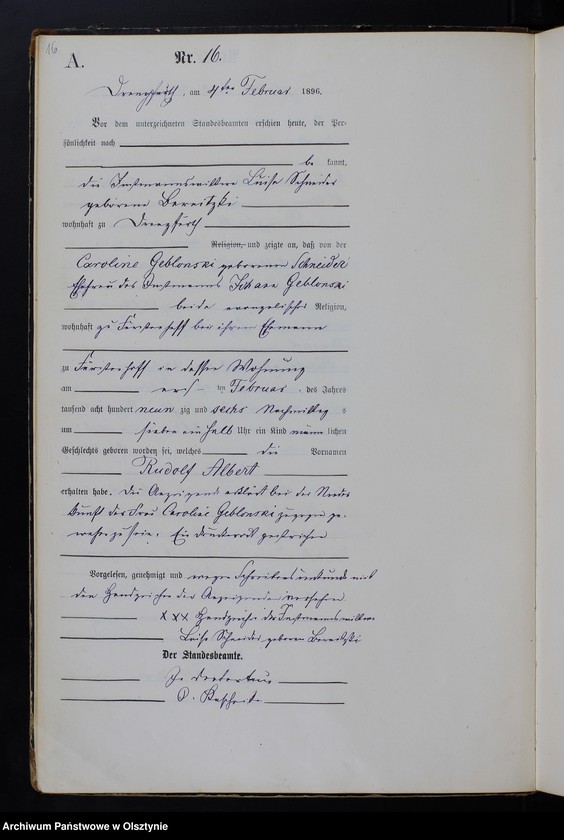 16
A.
Nr. 16.
Drengfurth, am 4ten Februar 1896.
Vor dem unterzeichneten Standesbeamten erschien heute, der Per-
sönlichkeit nach
be kannt,
die Instmannswittwe Luise Schneider
geborene Bereitzki
wohnhaft zu Drengfurth
Religion, und zeigte an, daß von der
Caroline Geblonski geborenen Schneider
Ehefrau des Instmanns Johann Geblonski
beide evangelischer Religion,
wohnhaft zu Fürstenhoff bei ihrem Ehemann
zu Fürstenhoff in dessen Wohnung
am ten Februar des Jahres
tausend acht hundert neun zig und sechs Nachmittag s
um sieben ein halb Uhr ein Kind männ lichen
Geschlechts geboren worden sei, welches die Vornamen
Rudolf Albert
erhalten habe. Die Anzeigende erklärt bei der Nieder
kunft der Frau Caroline Geblonski zugegen ge-
wesen zu sein. Ein Druckwort gestrichen
Vorgelesen, genehmigt und wegen Schreibensunkunde mit
den Handzeichen der Anzeigenden versehen
XXX Handzeichen der Instmannswittwe
Luise Schneider geborene Bereitzki
Der Standesbeamte.
In Vertretung
Archiwum Państwowe w Olsztynie